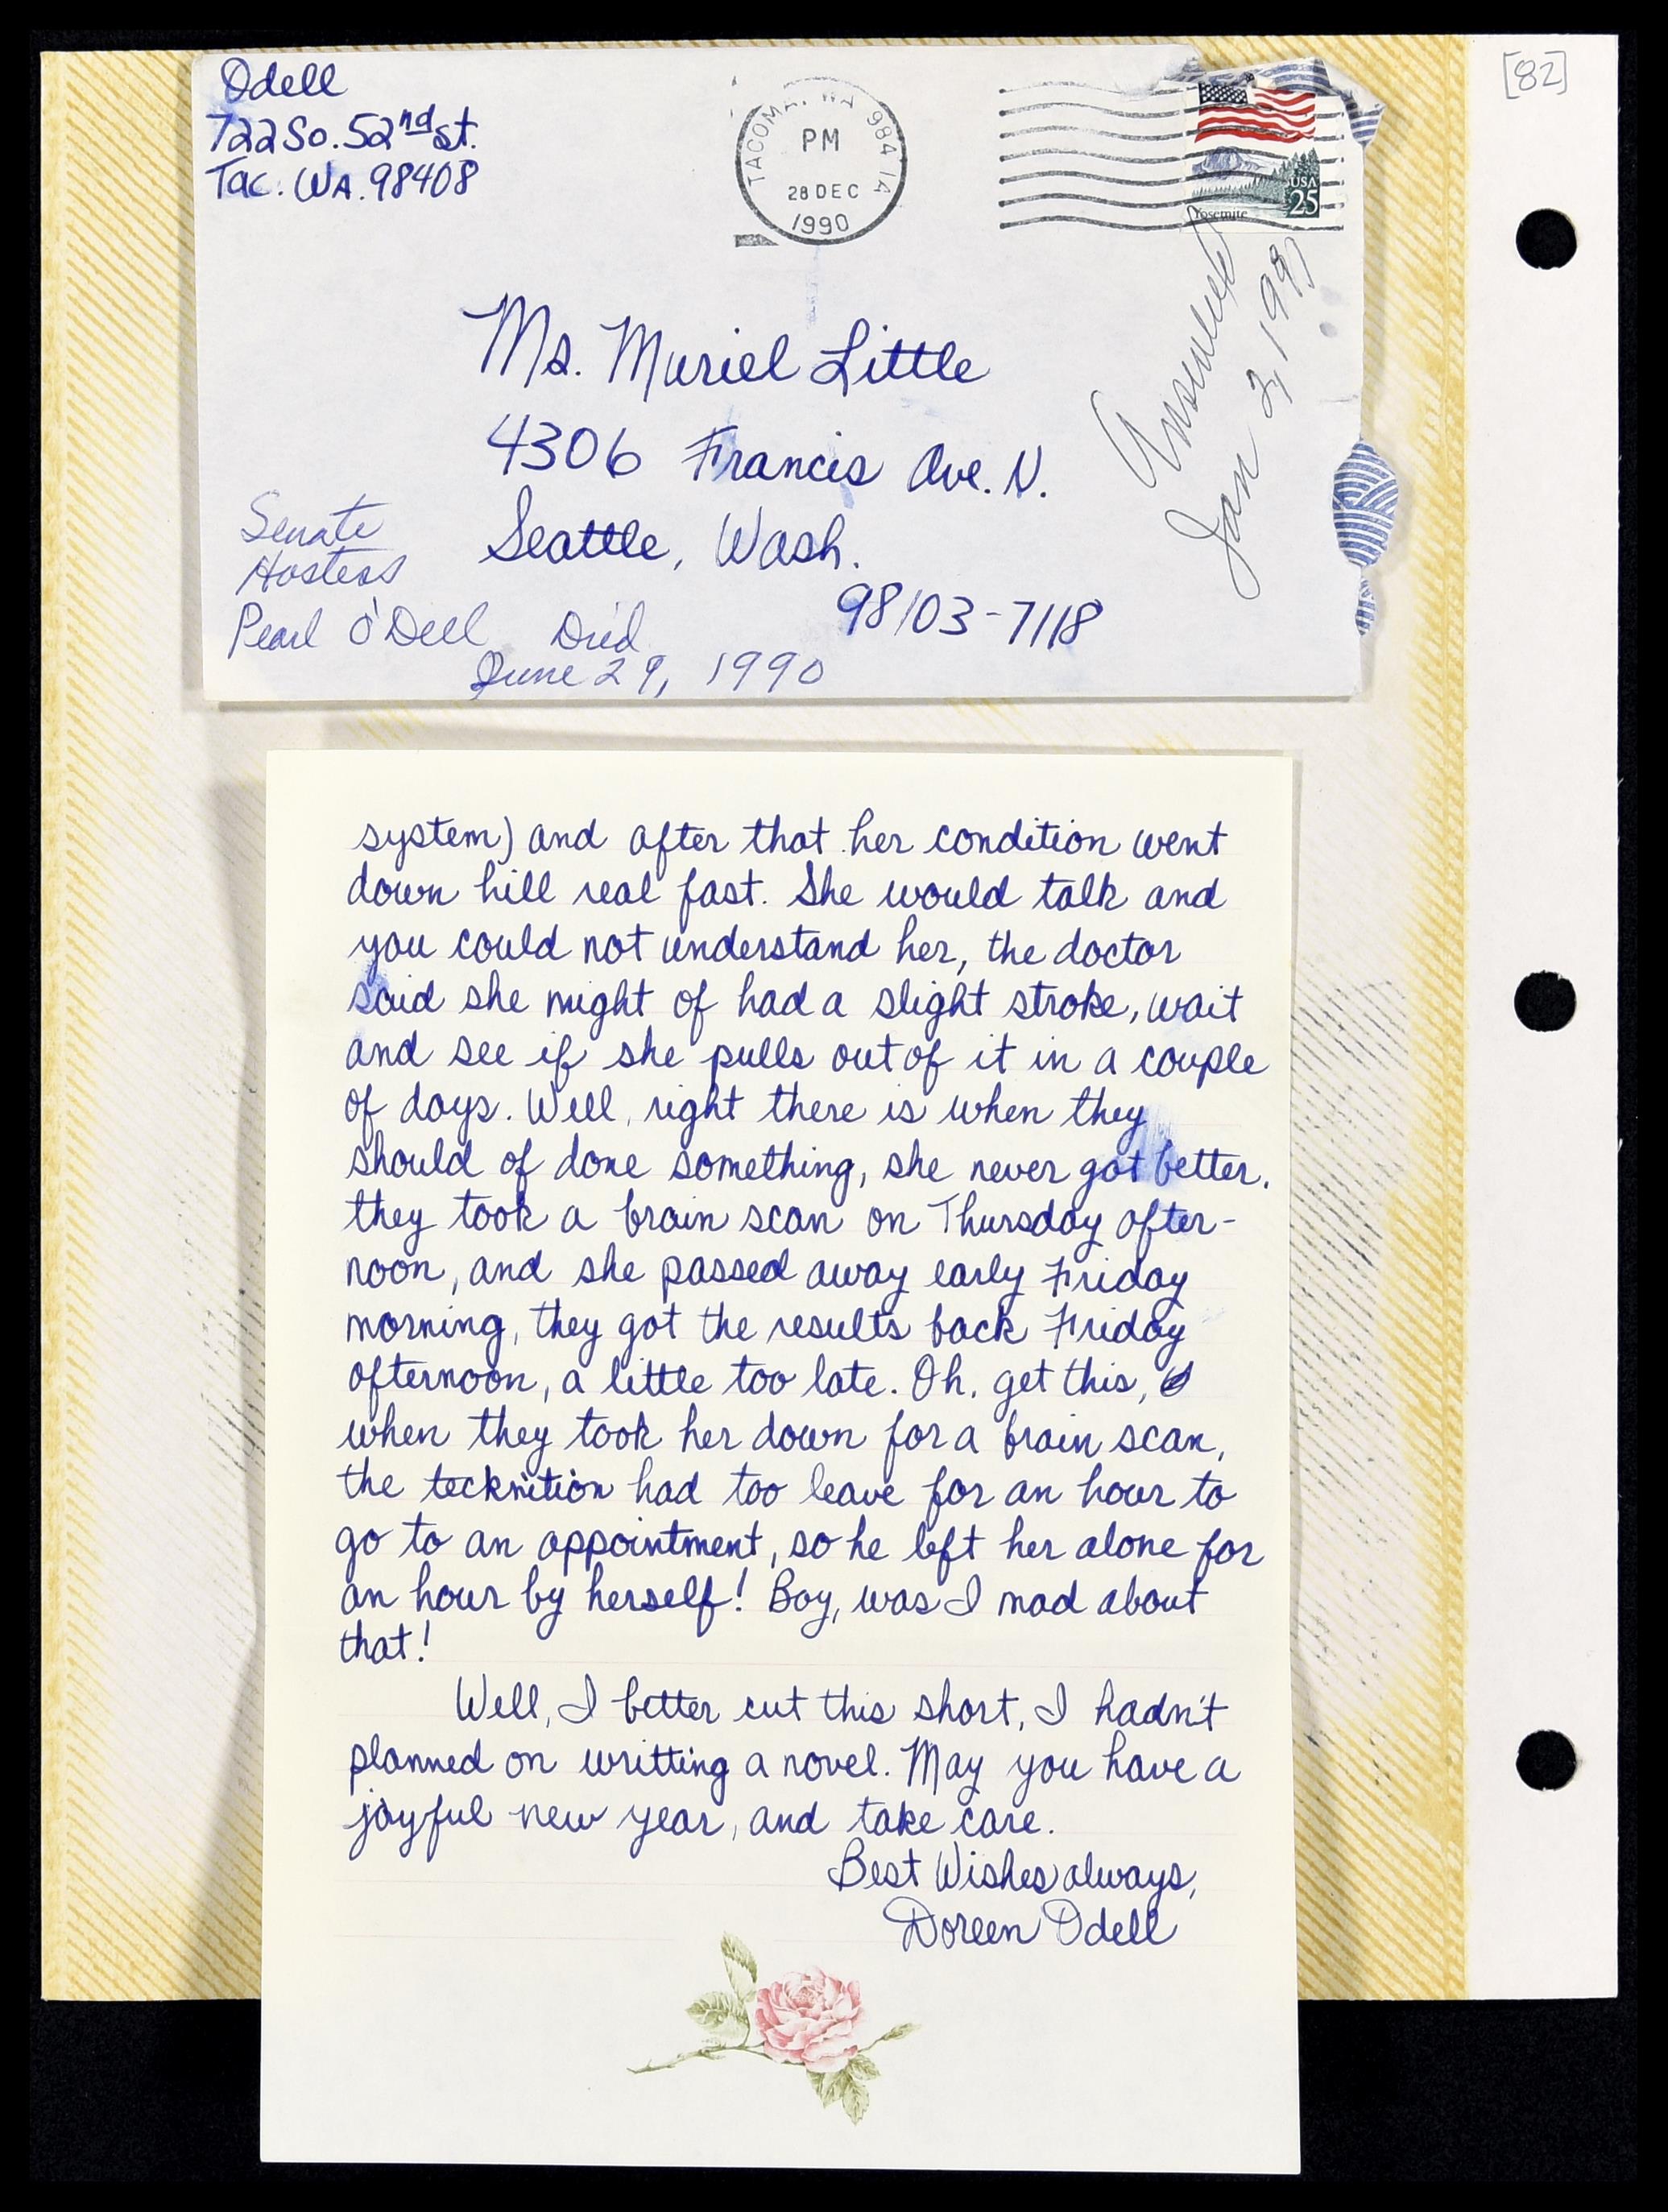 [82]
Odell
722 So. 52nd st.
Tac. WA. 98408
TACOMA, WA 984 1A
PM
28 DEC
1990
USA
25
Yosemite
Answered
Jan 3, 1991
Ms. Muriel Little
4306 Francis Ave. N.
Seattle, Wash.
98103-7118
Senate
Hostess
Pearl O'Dell Died
June 29, 1990
system) and after that her condition went
down hill real fast. She would talk and
you could not understand her, the doctor
said she might of had a slight stroke, wait
and see if she pulls out of it in a couple
of days. Well, right there is when they
should of done something, she never got better.
they took a brain scan on Thursday after-
noon, and she passed away early Friday
morning, they got the results back Friday
afternoon, a little too late. Oh, get this,
when they took her down for a brain scan,
the tecknition had too leave for an hour to
go to an appointment, so he left her alone for
an hour by herself! Boy, was I mad about
that!
Well, I better cut this short, I hadn't
planned on writting a novel. May you have a
joyful new year, and take care.
Best Wishes always,
Doreen Odell